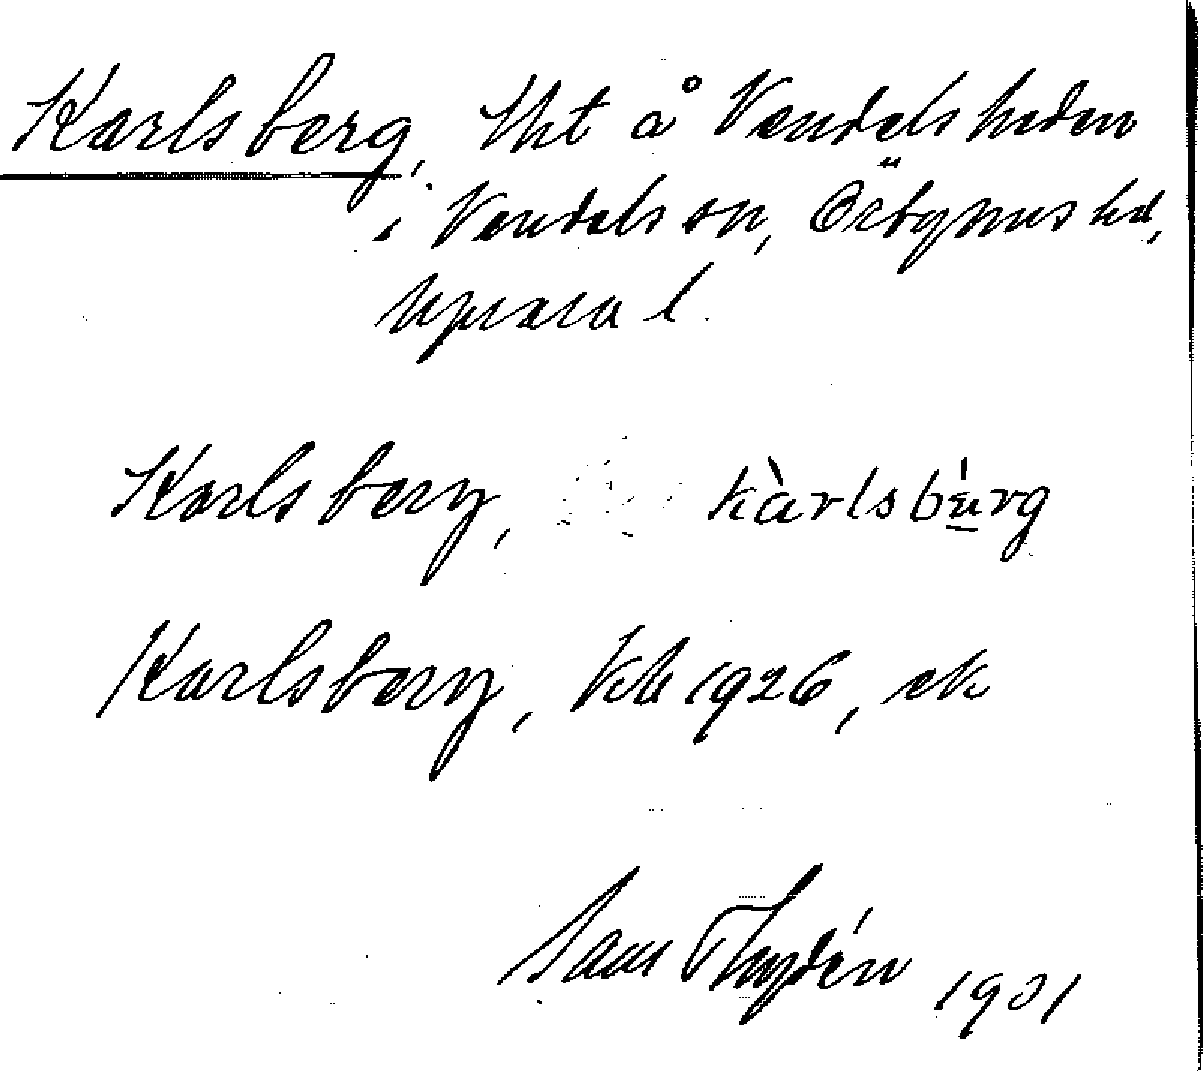 Karlsberg, tht å Vendelsheden
i Vendels sn, Örbyhus hd,
Uppsala l.
Karlsberg, kàrlsbä́rg
Karlsberg, kk 1926, ek
1931